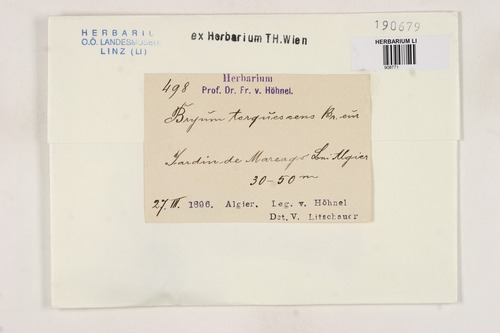 HERBARIU
O.Ö. LANDESMUSEUM
LINZ (LI)
ex Herbarium T.H. Wien
190679
HERBARIUM LI
498
Herbarium
Prof. Dr. Fr. v. Höhnel.
Bryum torquescens Br. eur
Jardin de Marengo bei Algier
30-50 m
27. III. 1896. Algier. Leg. v. Höhnel
Det. V. Litschauer